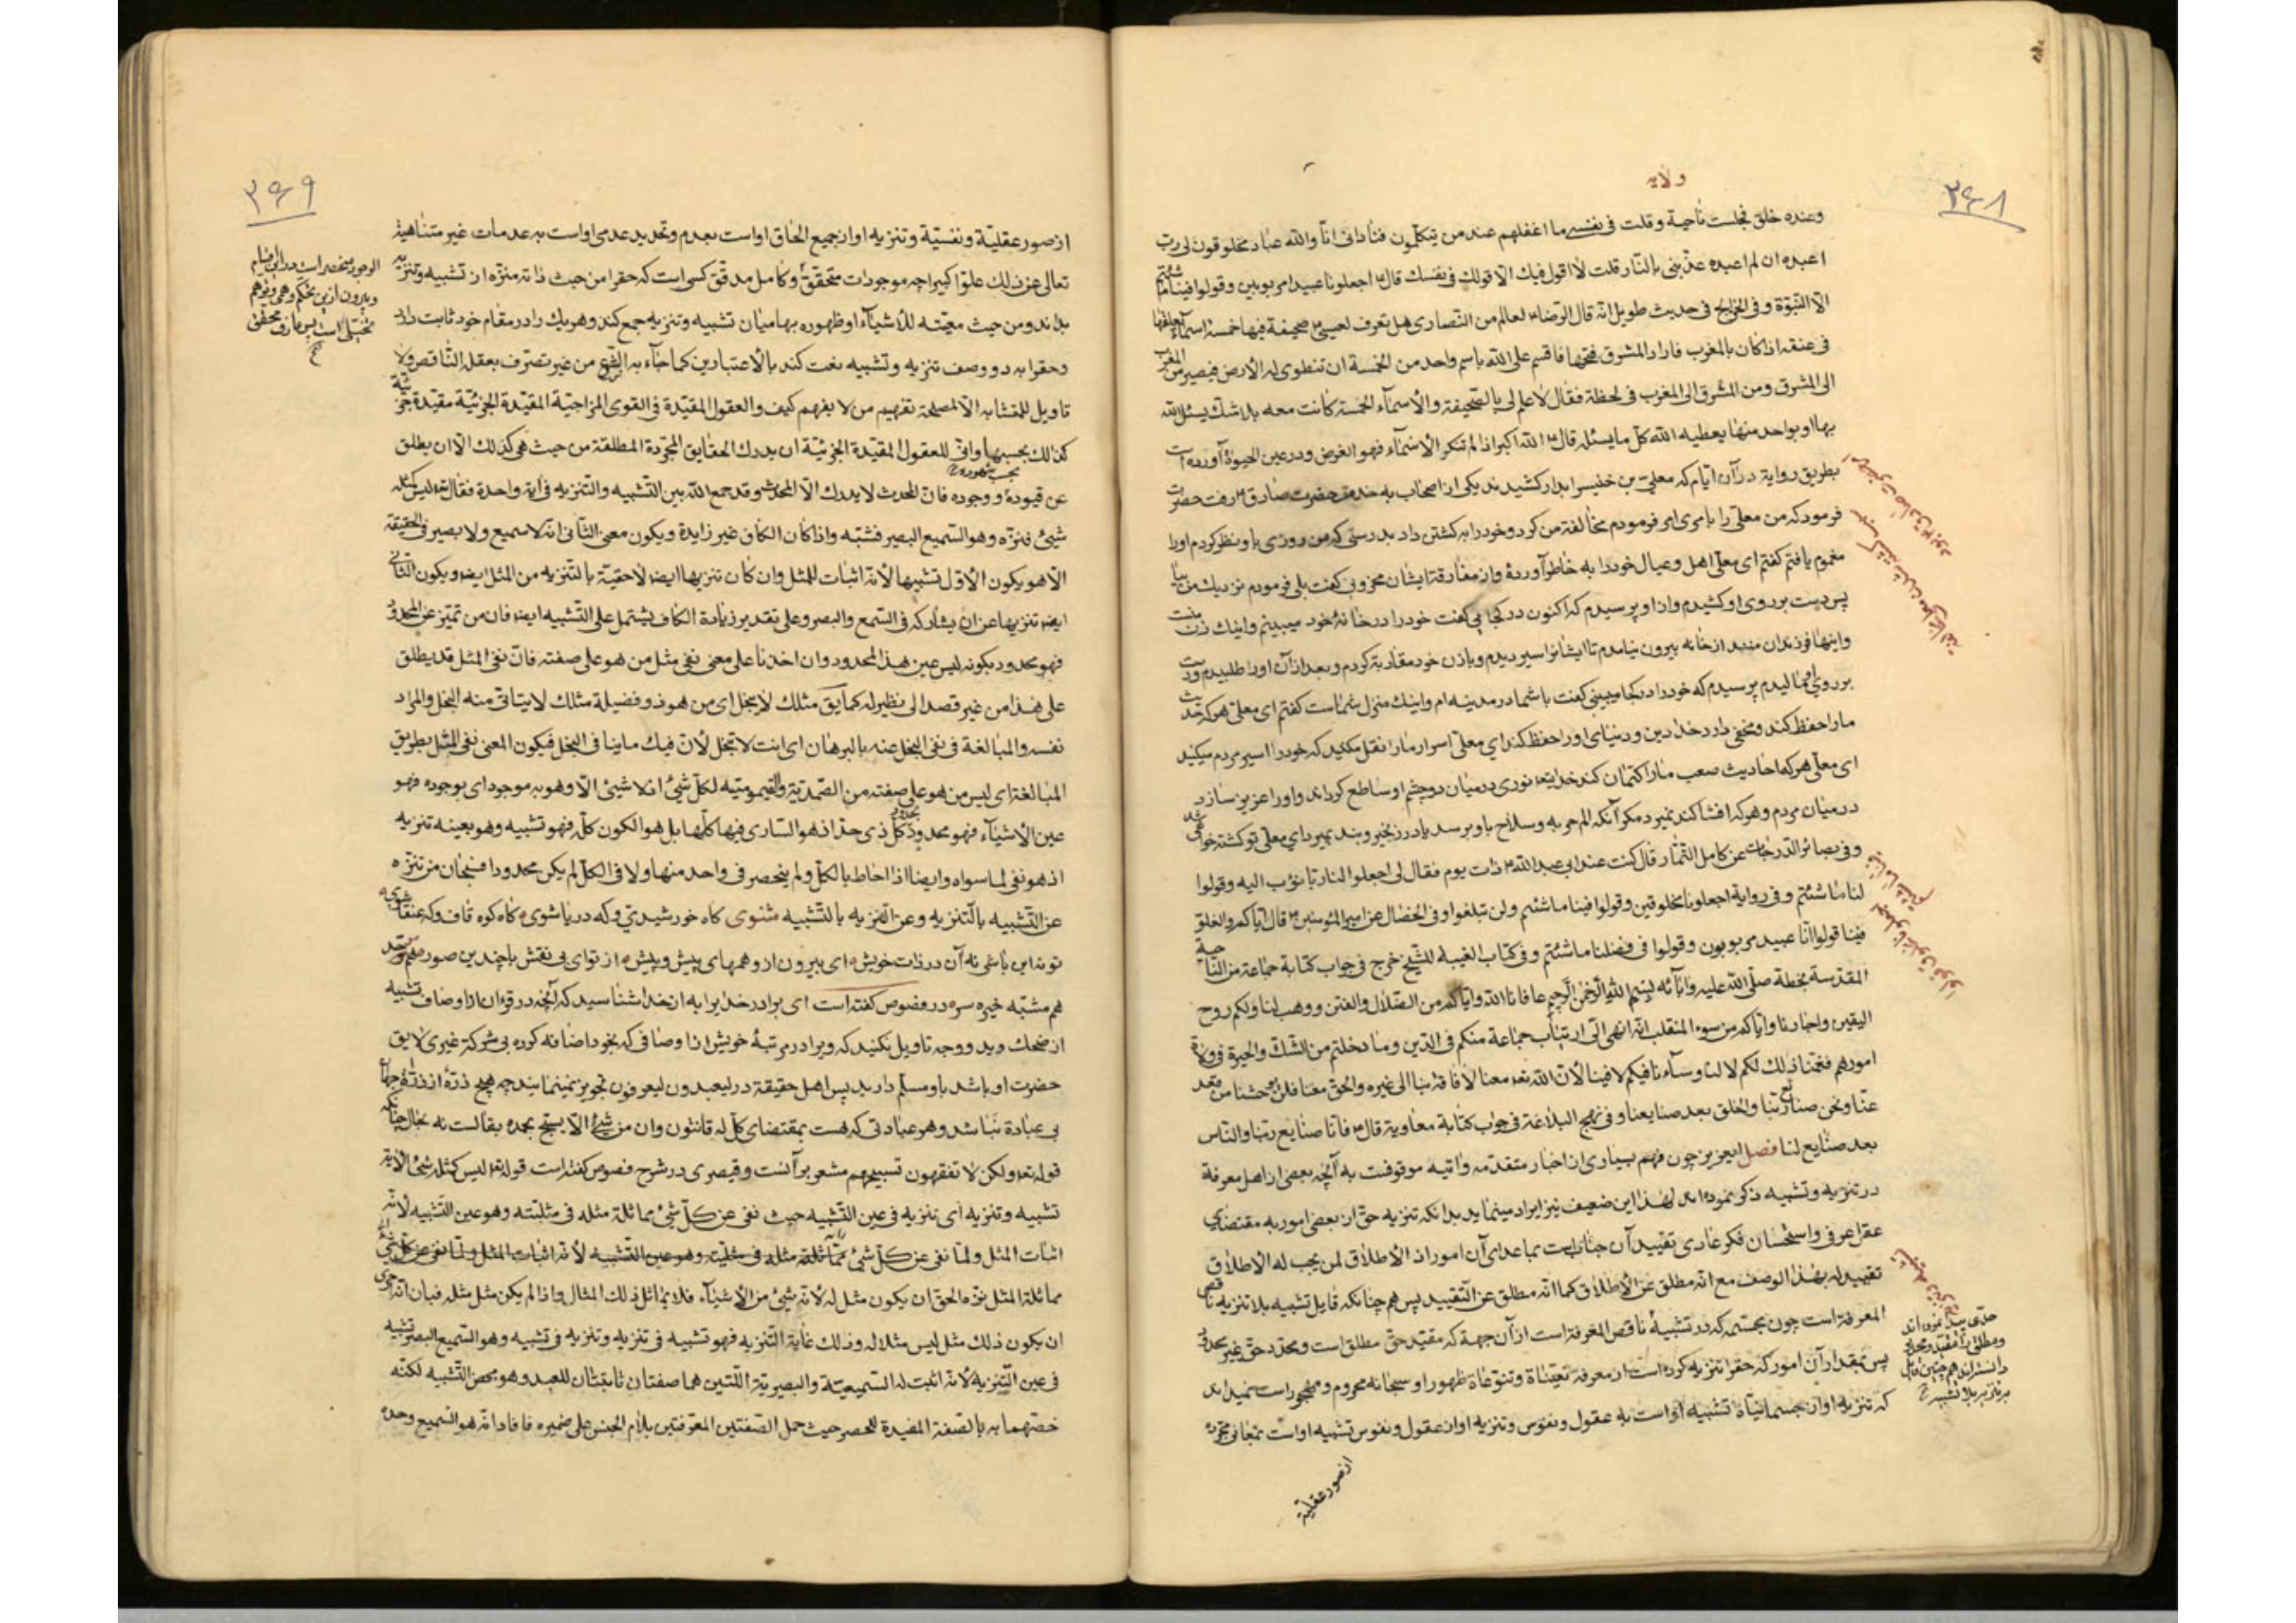 ولایه
۳۶۸
وعنده خلق فجلست ناحیة وقلت فی نفسی ما اغفلهم عند من یتکلّمون فنادانی انّا والله عباد مخلوقون لی ربّ
اعبده ان لم اعبده عذّبنی بالنّار قلت لا اقول فیک الّا قولک فی نفسک قال۴ اجعلونا عبیدا مربوبین وقولوا فینا ما شئتم
الّا النّبوّة وفی الخرایج فی حدیث طویل انّه قال الرّضا۴ لعالم من النّصاری هل تعرف لعیسی۴ صحیفة فیها خمسة اسمآء یعلقها
فی عنقه اذا کان بالمغرب فاراد المشرق فتحها فاقسم علی الله باسم واحد من الخمسة ان تنطوی له الأرض فیصیر من المغرب
الی المشرق ومن المشرق الی المغرب فی لحظة فقال لا علم لی بالصّحیفة والأسمآء الخمسة کانت معه بلا شکّ یسئل الله
بها او بواحد منها یعطیه الله کلّ ما یسئله قال۴ الله اکبر اذا لم تنکر الأسمآء فهو الغرض ودر عین الحیوة آورده است
بطریق روایة در آن ایّام که معلّی بن خنیس را بدار کشیدند یکی از اصحاب به خدمت حضرت صادق۴ رفت حضرت
فرمود که من معلّی را بامری امر فرمودم مخالفة من کرد و خود را به کشتن داد بدرستی که من روزی باو نظر کردم او را
مغموم یافتم گفتم ای معلّی اهل وعیال خود را به خاطر آوردۀ واز مفارقة ایشان محزونی گفت بلی فرمودم نزدیک من بیا
پس دست بر روی او کشیدم واز او پرسیدم که اکنون در کجایی گفت خود را در خانۀ خود میبینم واینک زن منست
واینها فرزندان منند از خانه بیرون نیامدم تا ایشانرا سیر دیدم وباذن خود مقاربة کردم وبعد از آن او را طلبیدم ودست
بر روی او مالیدم پرسیدم که خود را در کجا میبینی گفت با شما در مدینه ام واینک منزل شماست گفتم ای معلّی هر که حدیث
ما را حفظ کند ومخفی دارد خدا دین ودنیای او را حفظ کند ای معلّی اسرار ما را نقل مکنید که خود را اسیر مردم میکنید
ای معلّی هر که احادیث صعب ما را کتمان کند خدایتعا نوری در میان دو چشم او ساطع گرداند واو را عزیز سازد
در میان مردم وهر که افشا کند نمیرد مگر آنکه الم حربه وسلاح باو برسد یا در زنجیر وبند بمیرد ای معلّی تو کشته خواهی شد
وفی بصائر الدّرجات عن کامل التّمّار قال کنت عند ابی عبد الله۴ ذات یوم فقال لی اجعلوا لنا ربّا نؤب الیه وقولوا
لنا ما شئتم وفی روایة اجعلونا مخلوقین وقولوا فینا ما شئتم ولن تبلغوا وفی الخصال عن امیر المؤمنین۴ قال ایّاکم والغلوّ
فینا قولوا انّا عبید مربوبون وقولوا فی فضلنا ما شئتم وفی کتاب الغیبة للشّیخ خرج فی جواب کتابة جماعة من النّاحیة
المقدّسة بخطّه صلّی الله علیه وآبائه بسم الله الرّحمن الرّحیم عافانا الله وایّاکم من الضّلال والفتن ووهب لنا ولکم روح
الیقین واجارنا وایّاکم من سوء المنقلب انّه انهی الیّ ارتیاب جماعة منکم فی الدّین وما دخلتم من الشّکّ والحیرة فی ولاة
امورهم فغمّنا ذلک لکم لا لنا وسآء نا فیکم لا فینا لأنّ الله تعا معنا لا فاقة بنا الی غیره والحقّ معنا فلن یوحشنا من قعد
عنّا ونحن صنائع ربّنا والخلق بعد صنایعنا وفی نهج البلاغة فی جواب کتابة معاویة قال۴ فانّا صنایع ربّنا والنّاس
بعد صنایع لنا فصل ایعزیز چون فهم بسیاری از اخبار متقدّمه وآتیه موقوفست به آنچه بعضی از اهل معرفة
در تنزیه وتشبیه ذکر نموده اند لهذا این ضعیف نیز ایراد مینماید بدانکه تنزیه حقّ از بعضی امور به مقتضای
عقل عرفی واستحسان فکر عادی تقیید آن جنابست بماعدای آن امور اذ الأطلاق لمن یجب له الأطلاق
تقیید له بهذا الوصف مع انّه مطلق عن الأطلاق کما انّه مطلق عن التّقیید پس هم چنانکه قایل تشبیه بلا تنزیه ناقص
المعرفة است چون مجسّمه که در تشبیه ناقص المعرفة است از آن جهة که مقیّد حقّ مطلق است ومحدّد حقّ غیر محدود
پس بمقدار آن امور که حقرا تنزیه کرده است از معرفة تعیّناة وتنوّعاة ظهور او سبحانه محروم ومهجور است نمیداند
که تنزیه او از جسمانیّاة تشبیه او است به عقول ونفوس وتنزیه او از عقول ونفوس تشبیه او است بمعانی مجرّده
از صور عقلیّة
حقّ بیند نموده اند
ومطلق را مقیّد ومحدود
دانسته اند هم چنین قایل
به تنزیه بلا تشبیه
۳۶۹
از صور عقلیّة ونفسیّة وتنزیه او از جمیع الحاق او است بعدم وتحدید عدمی او است به عدمات غیر متناهیة
تعالی عن ذلک علوّا کبیرا چه موجودات متحقّق وکامل مدقّق کسی است که حقرا من حیث ذاته منزّه از تشبیه وتنزیه
بداند ومن حیث معیّته للأشیآء وظهوره بها میان تشبیه وتنزیه جمع کند وهر یک را در مقام خود ثابت دارد
وحقرا به دو وصف تنزیه وتشبیه نعت کند بالأعتبارین کما جآء به الشّرع من غیر تصرّف بعقله النّاقص ولا
تاویل للمتشابه الّا لمصلحة تفهیم من لا یفهم کیف والعقول المقیّدة فی القوی المزاجیّة المقیّدة الجزئیّة مقیّدة جزئیّة
کذلک بحسبها وانّی للعقول المقیّدة الجزئیّة ان یدرک الحقایق المجرّدة المطلقة من حیث هی کذلک الّا ان یطلق
عن قیوده ووجوده فانّ المحدث لا یدرک الّا المحدث وقد جمع الله بین التّشبیه والتّنزیه فی آیة واحدة فقال تعا لیس کمثله
شیئ فنزّه وهو السّمیع البصیر فشبّه واذا کان الکاف غیر زایدة ویکون معنی الثّانی انّه لا سمیع ولا بصیر فی الحقیقة
الّا هو یکون الأوّل تشبیها لأنّه اثبات للمثل وان کان تنزیها ایضا لاحقیّة بالتّنزیه من المثل ایضا ویکون الثّانی
ایضا تنزیها عن ان یشارکه فی السّمع والبصر وعلی تقدیر زیادة الکاف یشتمل علی التّشبیه ایضا فانّ من تمیّز عن المحدود
فهو محدود بکونه لیس عین هذا المحدود وان اخذنا علی معنی نفی مثل من هو علی صفته فانّ نفی المثل قد یطلق
علی هذا من غیر قصد الی نظیر له کما یق مثلک لا یبخل ای من هو ذو فضیلة مثلک لا یتاتّی منه البخل والمراد
نفسه والمبالغة فی نفی البخل عنه بالبرهان ای انت لا تبخل لأنّ فیک ما ینافی البخل فیکون المعنی نفی المثل بطریق
المبالغة ای لیس من هو علی صفته من الصّمدیّة والقیّومیّة لکلّ شیئ اذ لا شیئ الّا وهو به موجود ای بوجوده فهو
عین الأشیآء فهو محدود بحدود کلّ ذی حدّ اذ هو السّاری فیها کلّها بل هو الکون کلّه فهو تشبیه وهو بعینه تنزیه
اذ هو نفی لما سواه وایضا اذا احاط بالکلّ ولم ینحصر فی واحد منها ولا فی الکلّ لم یکن محدودا فسبحان من تنزّه
عن التّشبیه بالتّنزیه وعن التّنزیه بالتّشبیه مثنوی گاه خورشیدی وگه دریا شوی گاه کوه قاف وگه عنقا شوی
تو نه این باشی نه آن در ذات خویش ای بیرون از وهمهای پیش وپیش از توای بی نقش با چندین صور هم موحّد
هم مشبّه خیره سر در فصوص گفته است ای برادر خدایرا به از خدا شناسید که آنچه در قرءان از اوصاف تشبیه
از ضحک وید ووجه تاویل نکنید که ویرا در مرتبۀ خویش از اوصافی که بخود اضافه کرده بی شرکة غیری لایق
حضرت او باشد باو مسلّم دارید پس اهل حقیقة در لیعبدون لیعرفون تجویز نمینمایند چه هیچ ذرّه از ذرّات جهان
بی عبادة نباشد وهر عبادتی که هست بمقتضای کلّ له قانتون وان من شیئ الّا یسبّح بحمده بقالست نه بحال چنانکه
قوله تعا ولکن لا تفقهون تسبیحهم مشعر بر آنست وقیصری در شرح فصوص گفته است قوله تعا لیس کمثله شیئ الآیة
تشبیه وتنزیه ای تنزیه فی عین التّشبیه حیث نفی عن کلّ شیئ مماثلة مثله فی مثلیّته وهو عین التّشبیه لأنّه
اثبات المثل ولمّا نفی عن کلّ شیئ مماثلة مثله فی مثلیّته وهو عین التّشبیه لأنّه اثبات المثل ولمّا نفی عن کلّ شیئ
مماثلة المثل نزّه الحقّ ان یکون مثل له لأنّه شیئ من الأشیآء فلا یماثل ذلک المثال واذا لم یکن مثل مثله فبان انّه احری
ان یکون ذلک مثل لیس مثلا له وذلک غایة التّنزیه فهو تشبیه فی تنزیه وتنزیه فی تشبیه وهو السّمیع البصیر تشبیه
فی عین التّنزیه لأنّه اثبت له السّمیعیّة والبصیریّة اللّتین هما صفتان ثابتتان للعبد وهو محض التّشبیه لکنّه
خصّهما به بالصّفة المفیدة للحصر حیث حمل الصّفتین المعرّفتین بلام الجنس علی ضمیره فافاد انّه هو السّمیع وحده